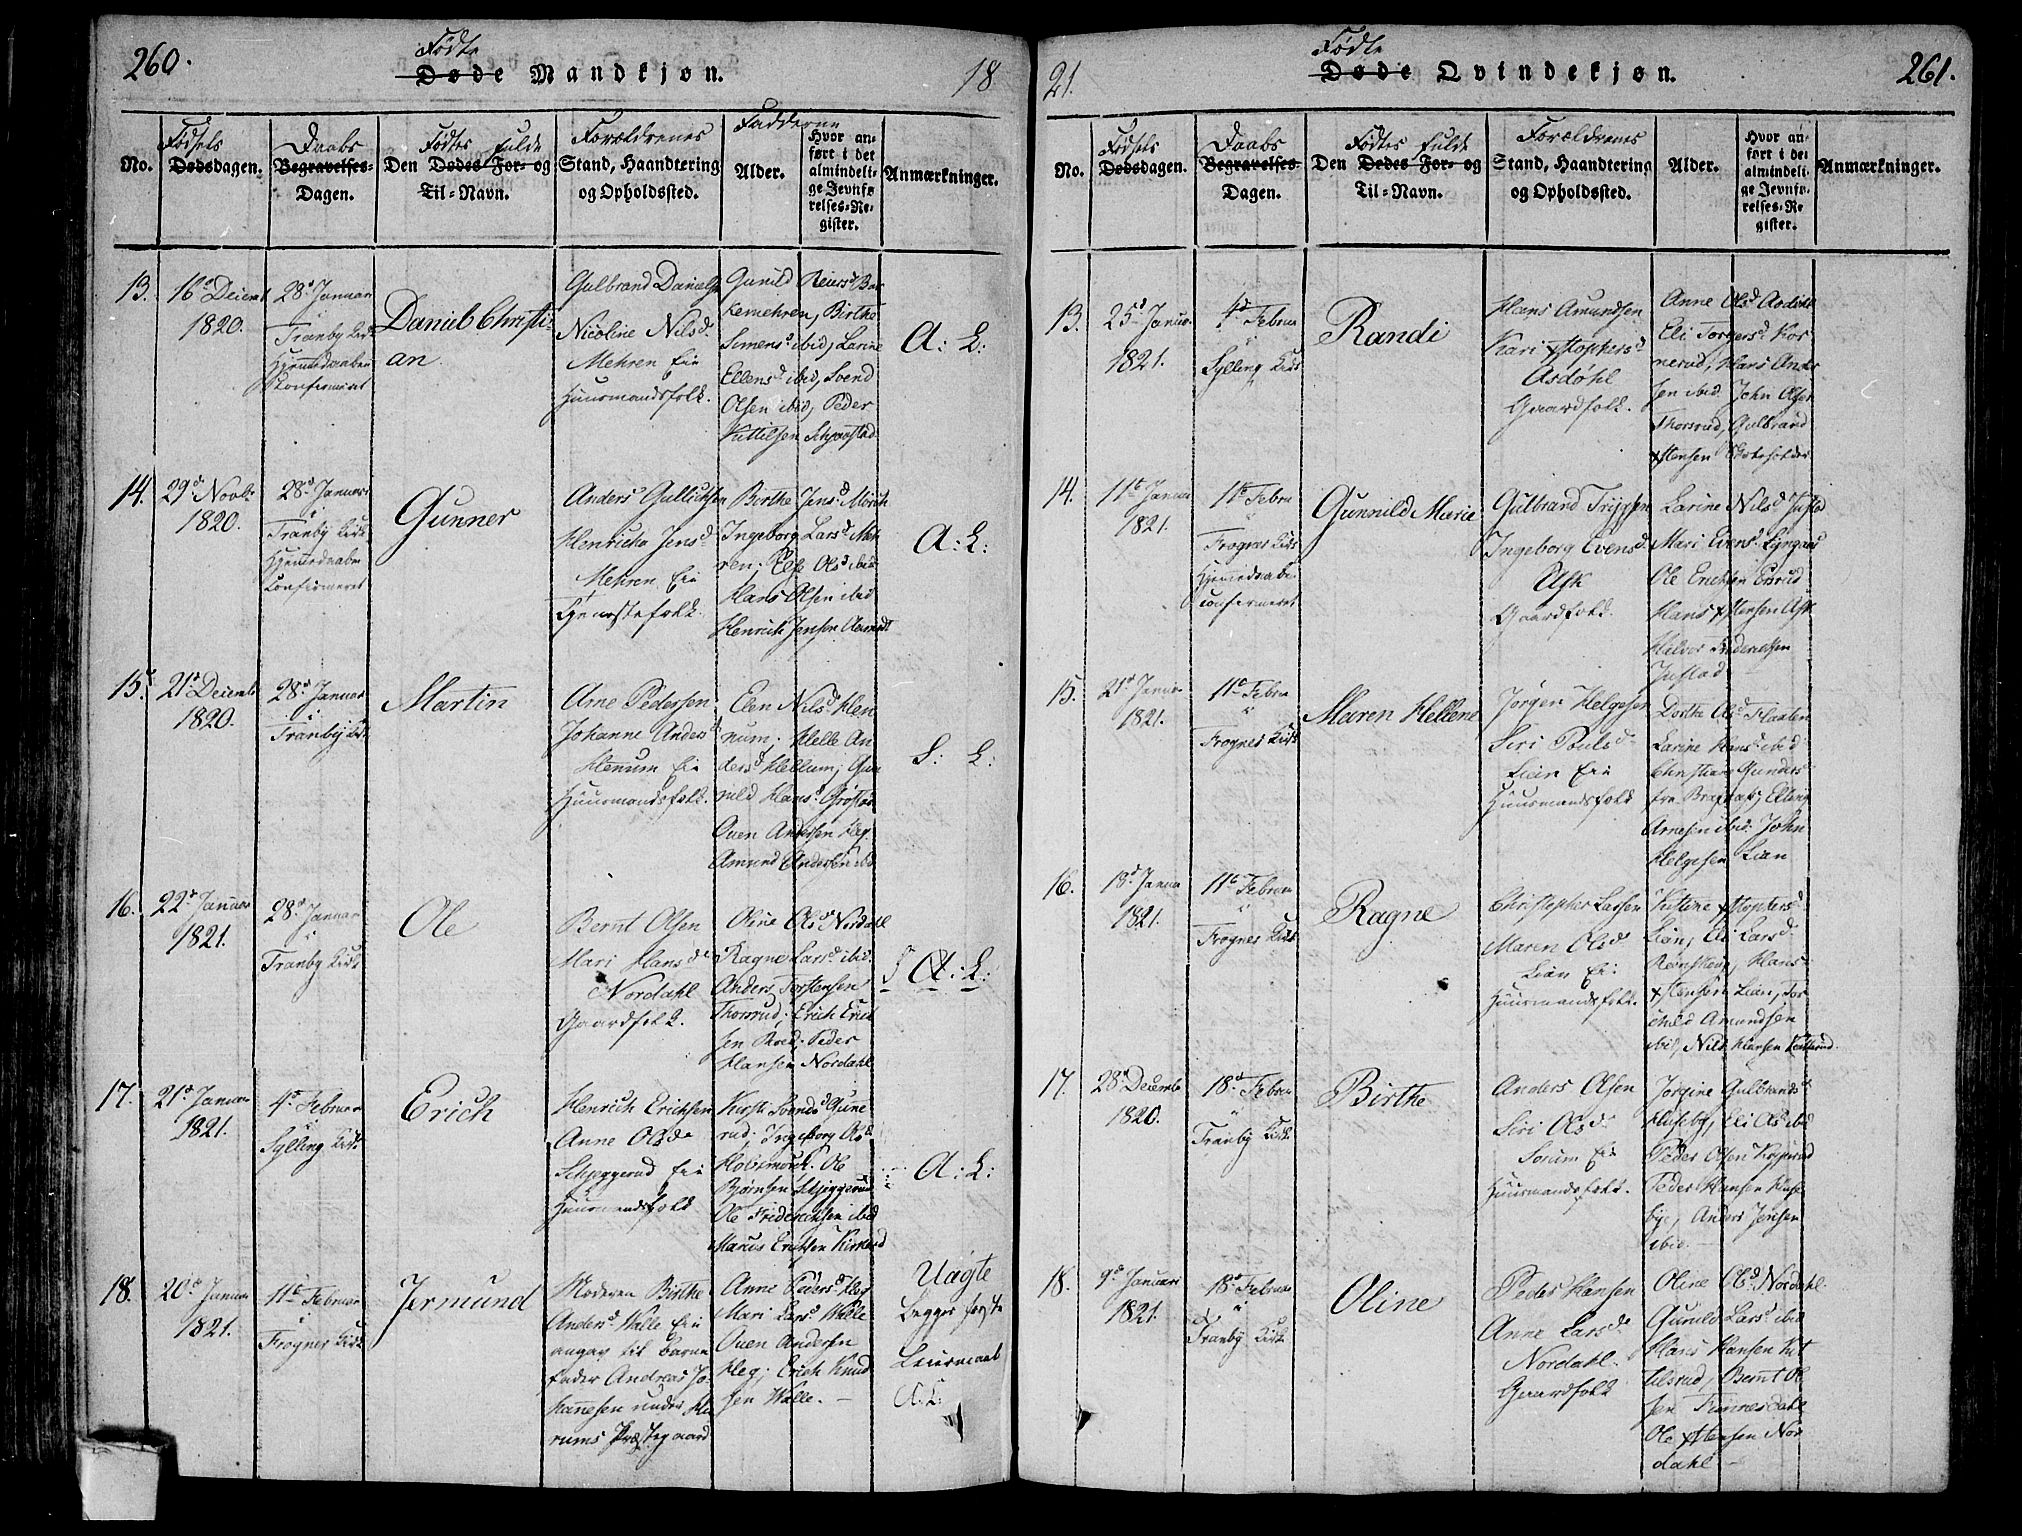 260.
Fødte
Døde Mandkjøn.
18
No.
Fødsels
Dødsdagen.
Daabs
Begravelses-
Dagen.
Fødtes fulde
Den Dødes For- og
Til-Navn.
Forældrenes
Stand, Haandtering
og Opholdssted.
Fadderne
Alder.
Hvor an-
ført i det
almindeli-
ge Jevnfø-
relses-Re-
gister.
Anmærkninger.
13.
16d Decembr
1820.
28d Januar
i
Tranby Kirke
Hjemmedaaben
Confirmeret
Daniel Christi-
an.
Gulbrand Danielsen
Nicoline Nilsd.
Mehren Eie
Huusmandsfolk.
Gunild Reiersd
Mehren, Birthe
Simensd ibid, Larine
Ellensd ibid, Svend
Olsen ibid, Peder
Kittilsen
A: L:
14.
29d Novbr
1820.
28d Januari
i
Tranby Kirke
Hjemmedaaben
Confirmeret
Gunner
Anders Gullichsen
Henricha Jensd
Mehren Eie
Tjenestefolk.
Birthe Jensd
Ingeborg Larsd Meh
ren; Olsd ibid
Hans Olsen ibid
Henrich Jensen
A: L:
15.
21d Decembr
1820.
28d Januar
i
Tranby Kirke
Martin
Arne Pedersen
Johanne Andersd
Hennum Eie
Huusmandsfolk.
Elen Nilsd Hen
num; Helle An
dersd Hellum; Gun
nild Hansd Grøstad
Oven Andersen Heg
Amund Andersen ibid
S: L:
16.
22d Januar
1821.
28d Januar
i
Tranby Kirke
Ole
Bernt Olsen
Mari Hansd
Nordahl
Gaardfolk.
Oline Olsd Nordahl
Ragne Larsd ibid.
Anders Torstensen
Thorsrud. Erich Erich
sen Roed. Peder
Hansen Nordahl
A: L:
17.
21d Januar
1821.
4d Februar
i
Sylling Kirke
Erich
Henrich Erichsen
Anne Olsd
Schjeggerud Eie
Huusmandsfolk
Kirsti Svendsd Gunne
rud. Ingeborg Olsd
Holtsmark. Ole
Bjørnsen Schjeggerud
Ole Friderichsen ibid
Marius Erichsen
A: L:
18.
20d Januar
1821.
11te Februar
i
Frogner Kirke
Jermund
Moderen Birthe
Andersd Walle Eie
angav til Barne
fader Andreas Jo
hannesen under Hu
rums Præstegaard
Anne Pedersd Heg
Mari Larsd Walle
Oven Andersen
Heg; Erich Knud
sen Walle.
Uægte
begges første
Leiermaal
A: L:
21.
Fødte
Døde Qvindekjøn.
261.
No.
Fødsels
Dødsdagen.
Daabs
Begravelses
Dagen.
Fødtes fulde
Den Dødes For- og
Til-Navn.
Forældrenes
Stand, Haandtering
og Opholdssted.
Alder.
Hvor an-
ført i det
almindeli-
ge Jevnfø-
relses-Re
gister.
Anmærkninger.
13.
25d Januar
1821.
4d Februar
i
Sylling Kirke
Randi
Hans Amundsen
Kari Xstophersd
Asdøhl
Gaardfolk.
Anne Olsd Asdøhl
Eli Torgersd Kor
nerud, Hans Ander
sen ibid. John Olsen
Thorsrud, Gulbrand
Xstensen
14.
11te Januar
1821.
11te Februar
i
Frogner Kirke
Hjemmedaaben
Confirmeret
Gunnild Marie
Gulbrand Trygsen
Ingeborg Evensd
Ask
Gaardfolk.
Larine Nilsd Justad
Mari Evensd Lyngaas
Ole Erichsen Enrud
Hans Xstensen Ask
Halvor Friderichsen
Justad
15.
21d Januar
1821.
11te Februar
i
Frogner Kirke
Maren Hellene
Jørgen Helgesen
Siri Poulsd
Lien Eie
Huusmandsfolk
Dorthe Olsd Flaaten
Larine Hansd ibid
Christiane Gundersd
fra Bragnæs, Elling
Arnesen ibid. John
Helgesen Lian
16.
18d Januar
1821.
11te Februar
i
Frogner Kirke
Ragne
Christopher Larsen
Maren Olsd
Lian Eie
Huusmandsfolk.
Kittine Xstophersd
Lian; Eli Larsd
Rønskoug, Hans
Xstensen Lian, Tor
child Amundsen
ibid, Nils Hansen
17.
28d Decembr
1820.
18d Februar
i
Tranby Kirke
Birthe
Anders Olsen
Siri Olsd
Sørum Eie
Huusmandsfolk.
Jorgine Gulbrandsd
Huseby, Eli Olsd ibid
Peder Olsen
Peder Hansen Huse
bye, Anders Jensen
ibid.
18.
9d Januari
1821.
18d Februar
i
Tranby Kirke
Oline
Peder Hansen
Anne Larsd
Nordahl.
Gaardfolk
Oline Olsd Nordahl
Gunild Larsd ibid
Hans Hansen Kit
tilsrud, Bernt Ol
sen Tunnesdahl
Ole Xstensen Nor
dahl